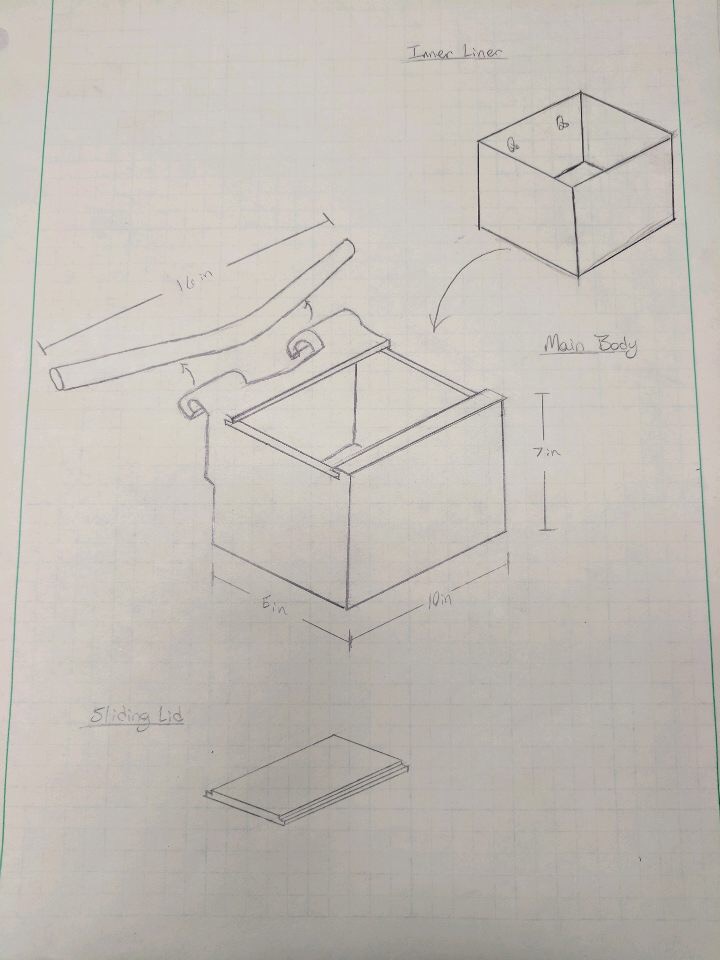 Inner Liner
16in
Main Body
7in
5in
10in
Sliding Lid